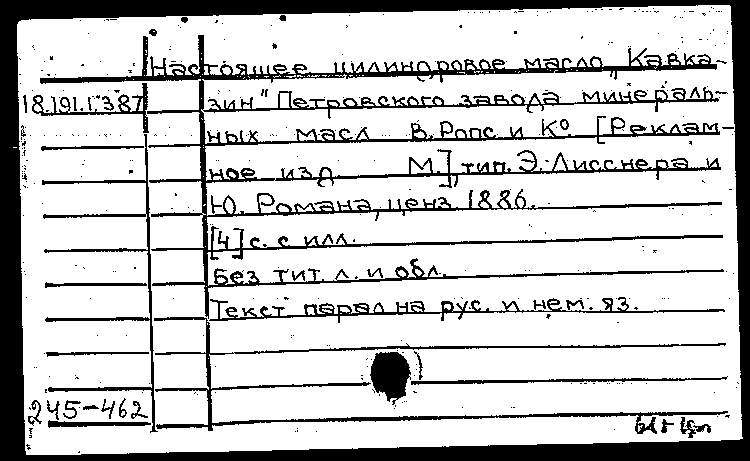 Настоящее цилиндровое масло „Кавка-
18.191.1.387 зин" Петровского завода минераль-
ных масл В. Ропс и К° [Реклам-
ное изд. М.], тип. Э. Лисснера и
Ю. Романа, ценз. 1886.
[4] с. с илл.
Без тит. л. и обл.
Текст парал. на рус. и нем. яз.
245-462